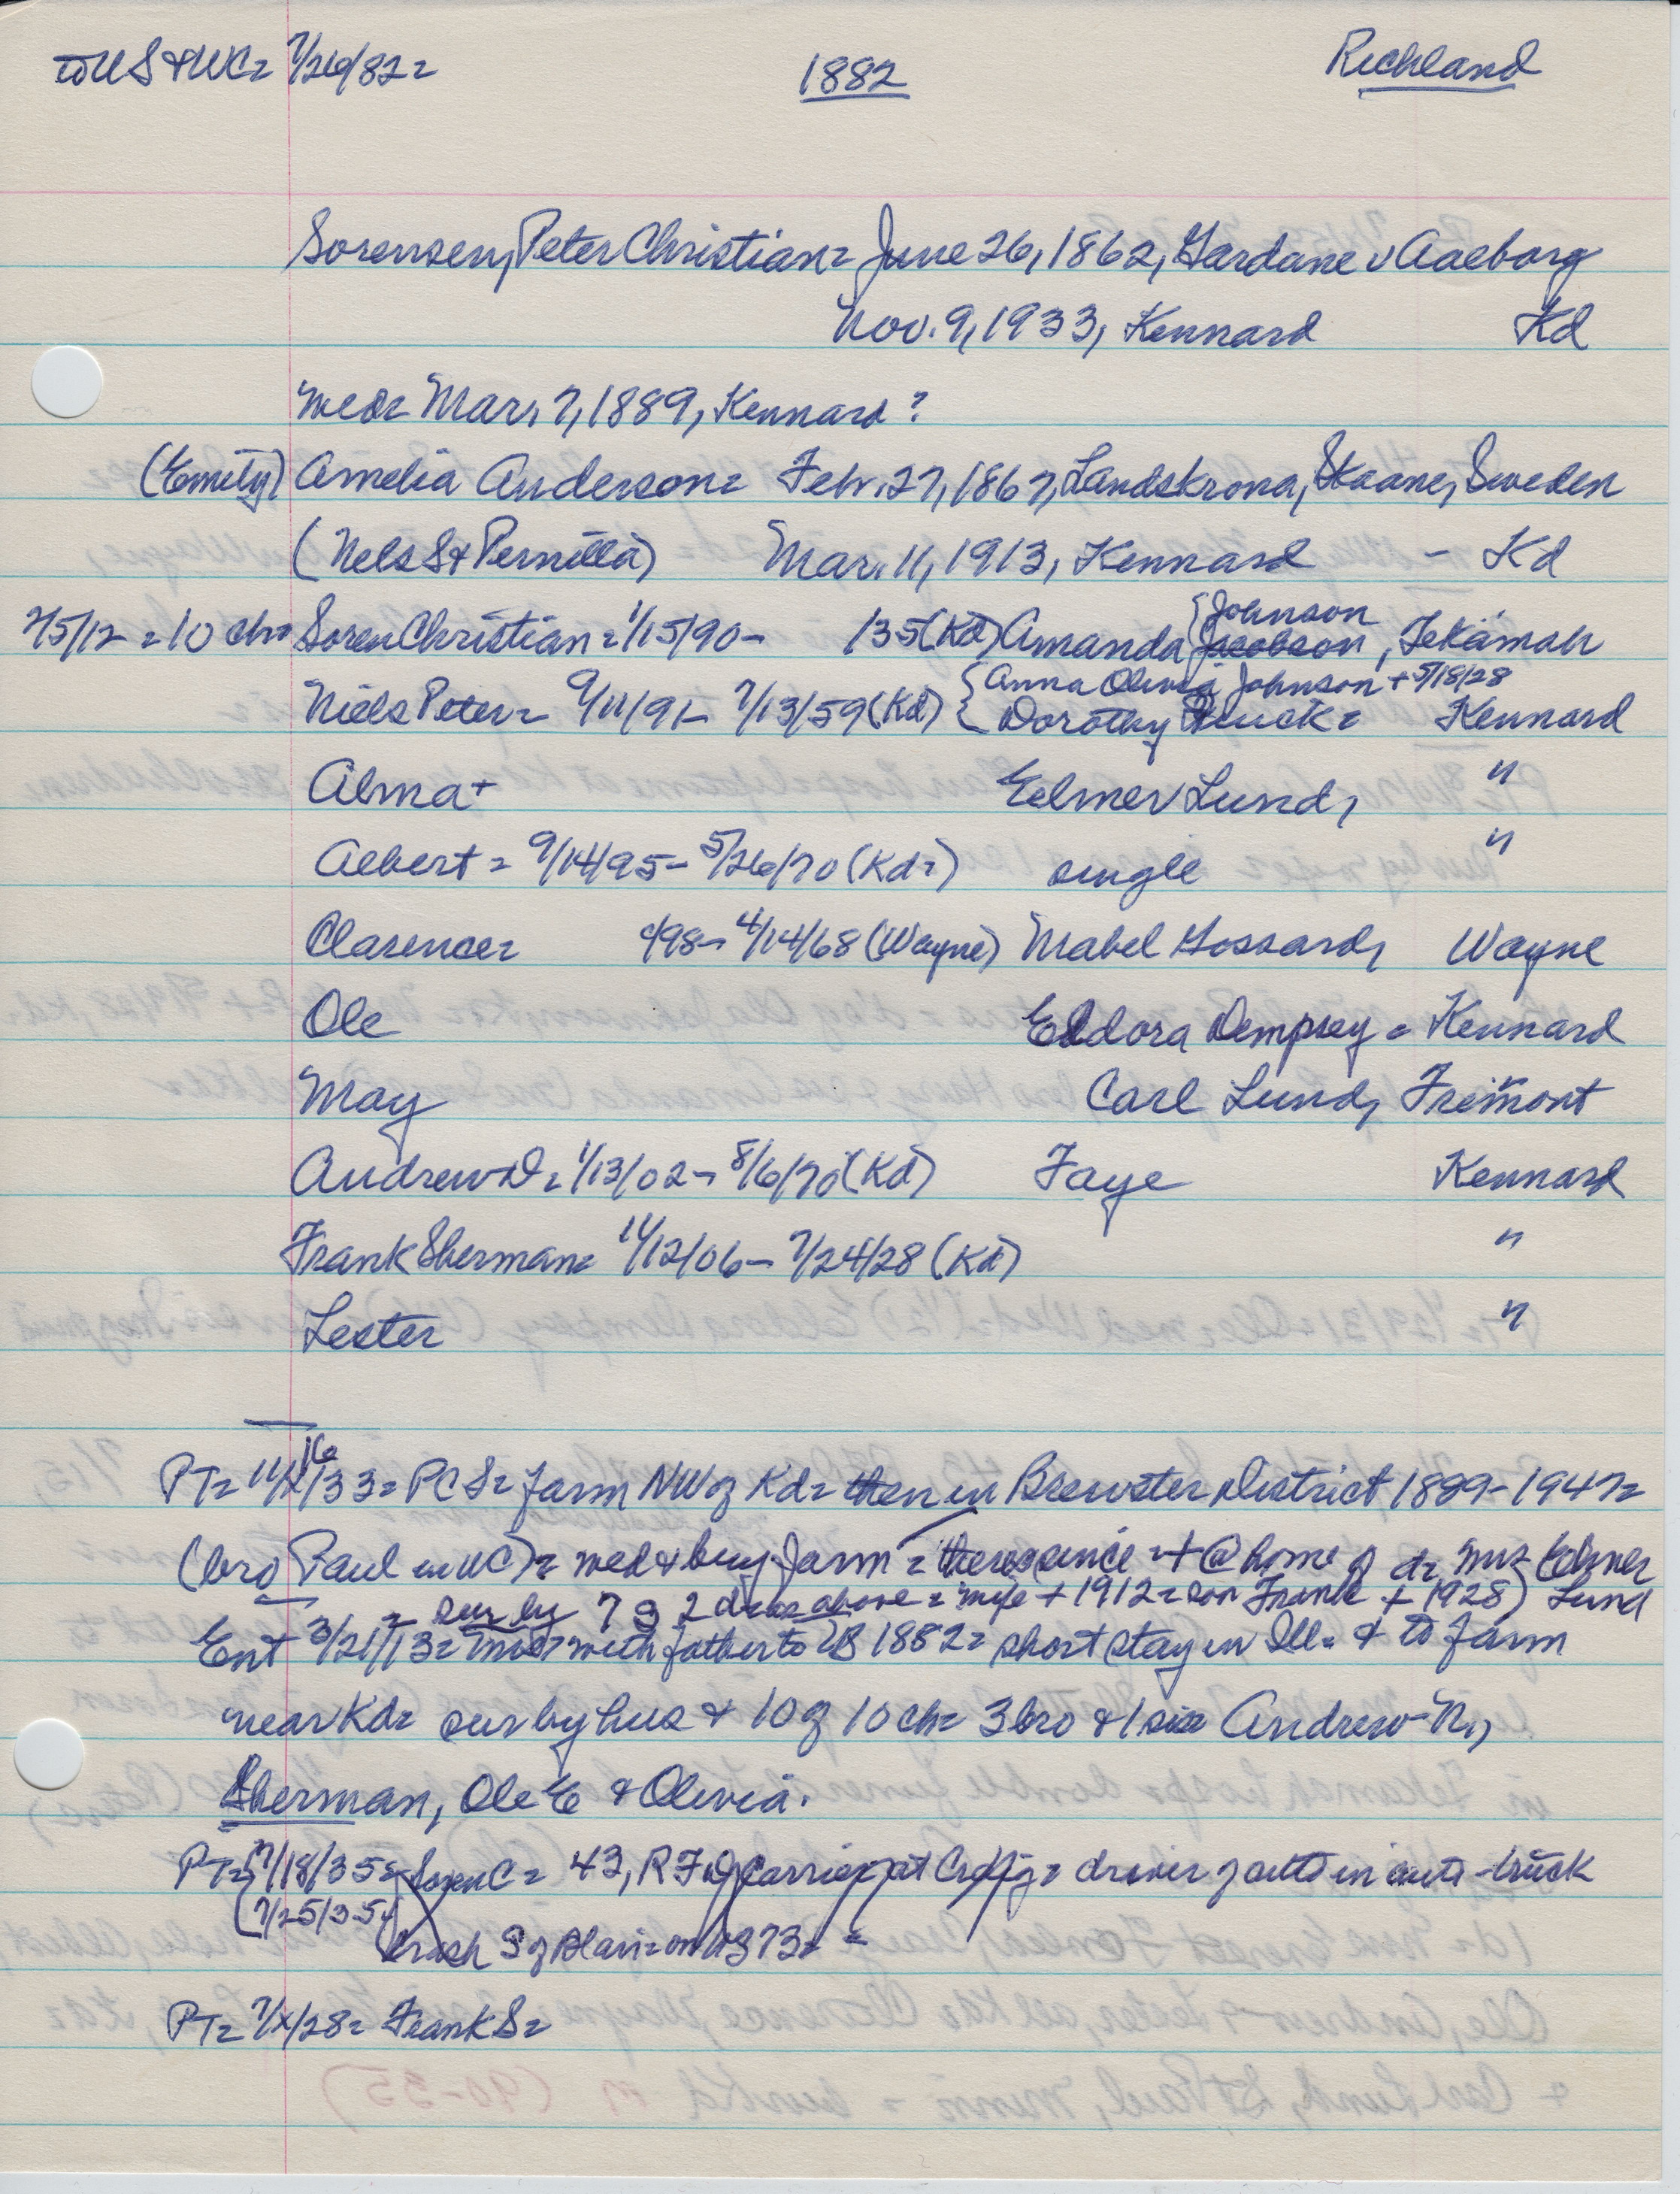 to US & WC= 7/26/82= 1882 Richland
Sorensen, Peter Christian= June 26, 1862, Gardane v Aalborg
Nov. 9, 1933, Kennard Kd
wed= Mar. 7, 1889, Kennard?
(Emily) Amelia Anderson= Febr. 27, 1867, Landskrona, Skaane, Sweden
(Nels S & Pernilla) Mar. 11, 1913, Kennard - Kd
=10 ch= Soren Christian= 1/15/90- /35 (Kd) Amanda { Johnson
Jacobson, Tekamah
Niels Peter= 9/11/91- 7/13/59 (Kd) { Anna Olivia Johnson + 5/18/28
Dorothy = Kennard
Alma + Elmer Lund, "
Albert= 9/14/95- 5/26/70 (Kd=) single "
Clarence= /98- 4/14/68 (Wayne) Mabel Gossard, Wayne
Ole Eldora Dempsey= Kennard
May Carl Lund, Fremont
Andrew D= 1/13/02- 8/6/70 (Kd) Faye Kennard
Frank Sherman= 11/12/06- 7/24/28 (Kd) "
Lester "
PT= 11/16/33= PCS= farm NW of Kd= then in Brewster District 1889-1947=
(bro Paul in WC)= wed & buy farm= there since= + @ home of d= Mrs Elmer
sur by 7 s 2 d= as above= wife + 1912= son Frank + 1928) Lund
Ent 3/21/13= with father to 1882= short stay in Ill= & to farm
near Kd= sur by hus & 10 of 10 ch= 3 bro & 1 sis Andrew N.,
Sherman, Ole E & Olivia.
PT= { 7/18/35= Soren C= 43, RFD carrier at Crfg= driver of auto in auto-truck
7/25/35
crash S of Blair= on 73=
PT= 7/x/28= Frank S=